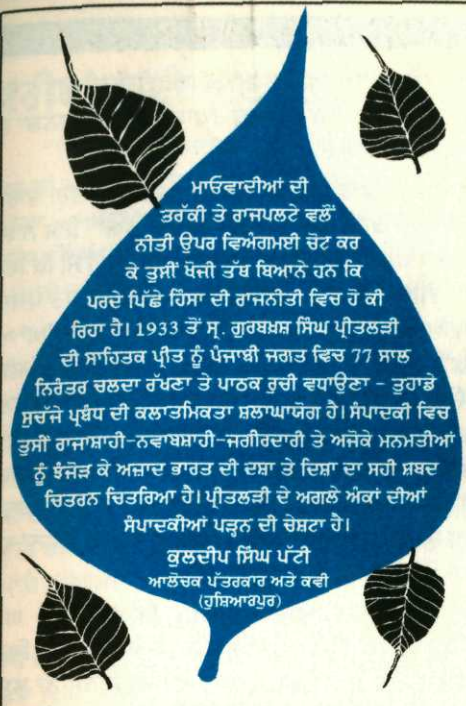 ਮਾਓਵਾਦੀਆਂ ਦੀ
ਤਰੱਕੀ ਤੇ ਰਾਜਪਲਟੇ ਵਲੋਂ
ਨੀਤੀ ਉਪਰ ਵਿਅੰਗਮਈ ਚੋਟ ਕਰ
ਕੇ ਤੁਸੀਂ ਖੋਜੀ ਤੱਥ ਬਿਆਨੇ ਹਨ ਕਿ
ਪਰਦੇ ਪਿੱਛੇ ਹਿੰਸਾ ਦੀ ਰਾਜਨੀਤੀ ਵਿਚ ਹੋ ਕੀ
ਰਿਹਾ ਹੈ। 1933 ਤੋਂ ਸ੍ਰ. ਗੁਰਬਖ਼ਸ਼ ਸਿੰਘ ਪ੍ਰੀਤਲੜੀ
ਦੀ ਸਾਹਿਤਕ ਪ੍ਰੀਤ ਨੂੰ ਪੰਜਾਬੀ ਜਗਤ ਵਿਚ 77 ਸਾਲ
ਨਿਰੰਤਰ ਚਲਦਾ ਰੱਖਣਾ ਤੇ ਪਾਠਕ ਰੁਚੀ ਵਧਾਉਣਾ - ਤੁਹਾਡੇ
ਸੁਚੱਜੇ ਪ੍ਰਬੰਧ ਦੀ ਕਲਾਤਮਿਕਤਾ ਸ਼ਲਾਘਾਯੋਗ ਹੈ। ਸੰਪਾਦਕੀ ਵਿਚ
ਤੁਸੀਂ ਰਾਜਾਸ਼ਾਹੀ-ਨਵਾਬਸ਼ਾਹੀ-ਜਗੀਰਦਾਰੀ ਤੇ ਅਜੋਕੇ ਮਨਮਤੀਆਂ
ਨੂੰ ਝੰਜੋੜ ਕੇ ਅਜ਼ਾਦ ਭਾਰਤ ਦੀ ਦਸ਼ਾ ਤੇ ਦਿਸ਼ਾ ਦਾ ਸਹੀ ਸ਼ਬਦ
ਚਿਤਰਨ ਚਿਤਰਿਆ ਹੈ। ਪ੍ਰੀਤਲੜੀ ਦੇ ਅਗਲੇ ਅੰਕਾਂ ਦੀਆਂ
ਸੰਪਾਦਕੀਆਂ ਪੜ੍ਹਨ ਦੀ ਚੇਸ਼ਟਾ ਹੈ।
ਕੁਲਦੀਪ ਸਿੰਘ ਪੱਟੀ
ਆਲੋਚਕ ਪੱਤਰਕਾਰ ਅਤੇ ਕਵੀ
(ਹੁਸ਼ਿਆਰਪੁਰ)